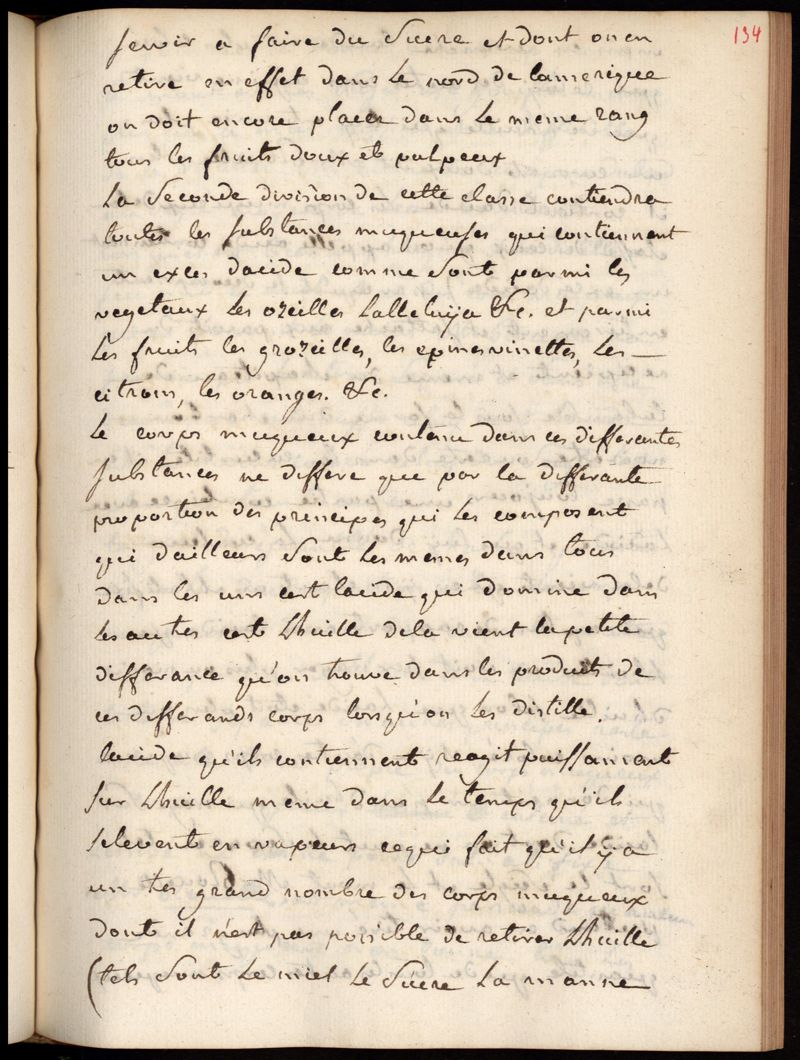 134
servir a faire du Sucre et dont on en
retire en effet dans Le nord de lamerique
on doit encore placer dans Le meme rang
tous les fruits doux et pulpeux
La Seconde division de cette classe contiendra
toutes les substances muqueuses qui contiennent
un exces dacide comme Sont parmi les
vegetaux Les ozeilles Lalleluya &c. et parmi
Les fruits les grozeilles, les epinesvinettes, Les —
citrons, les oranges. &c.
Le corps muqueux contenu dans ces differantes
substances ne differe que par la differante
proportion des principes qui Les composent
qui dailleurs Sont Les memes dans tous
dans les uns cest lacide qui domine dans
Les autres cest Lhuille dela vient la petite
differance qu'on trouve dans les produits de
ces differands corps lorsqu'on Les distille.
lacide qu'ils contiennent reagit puissament
sur Lhuille meme dans Le temps qu'ils
selevent en vapeurs cequi fait qu'il y a
un tes grand nombre des corps muqueux
dont il n'est pas possible de retirer Lhuille
(tels Sont Le miel Le Sucre La manne